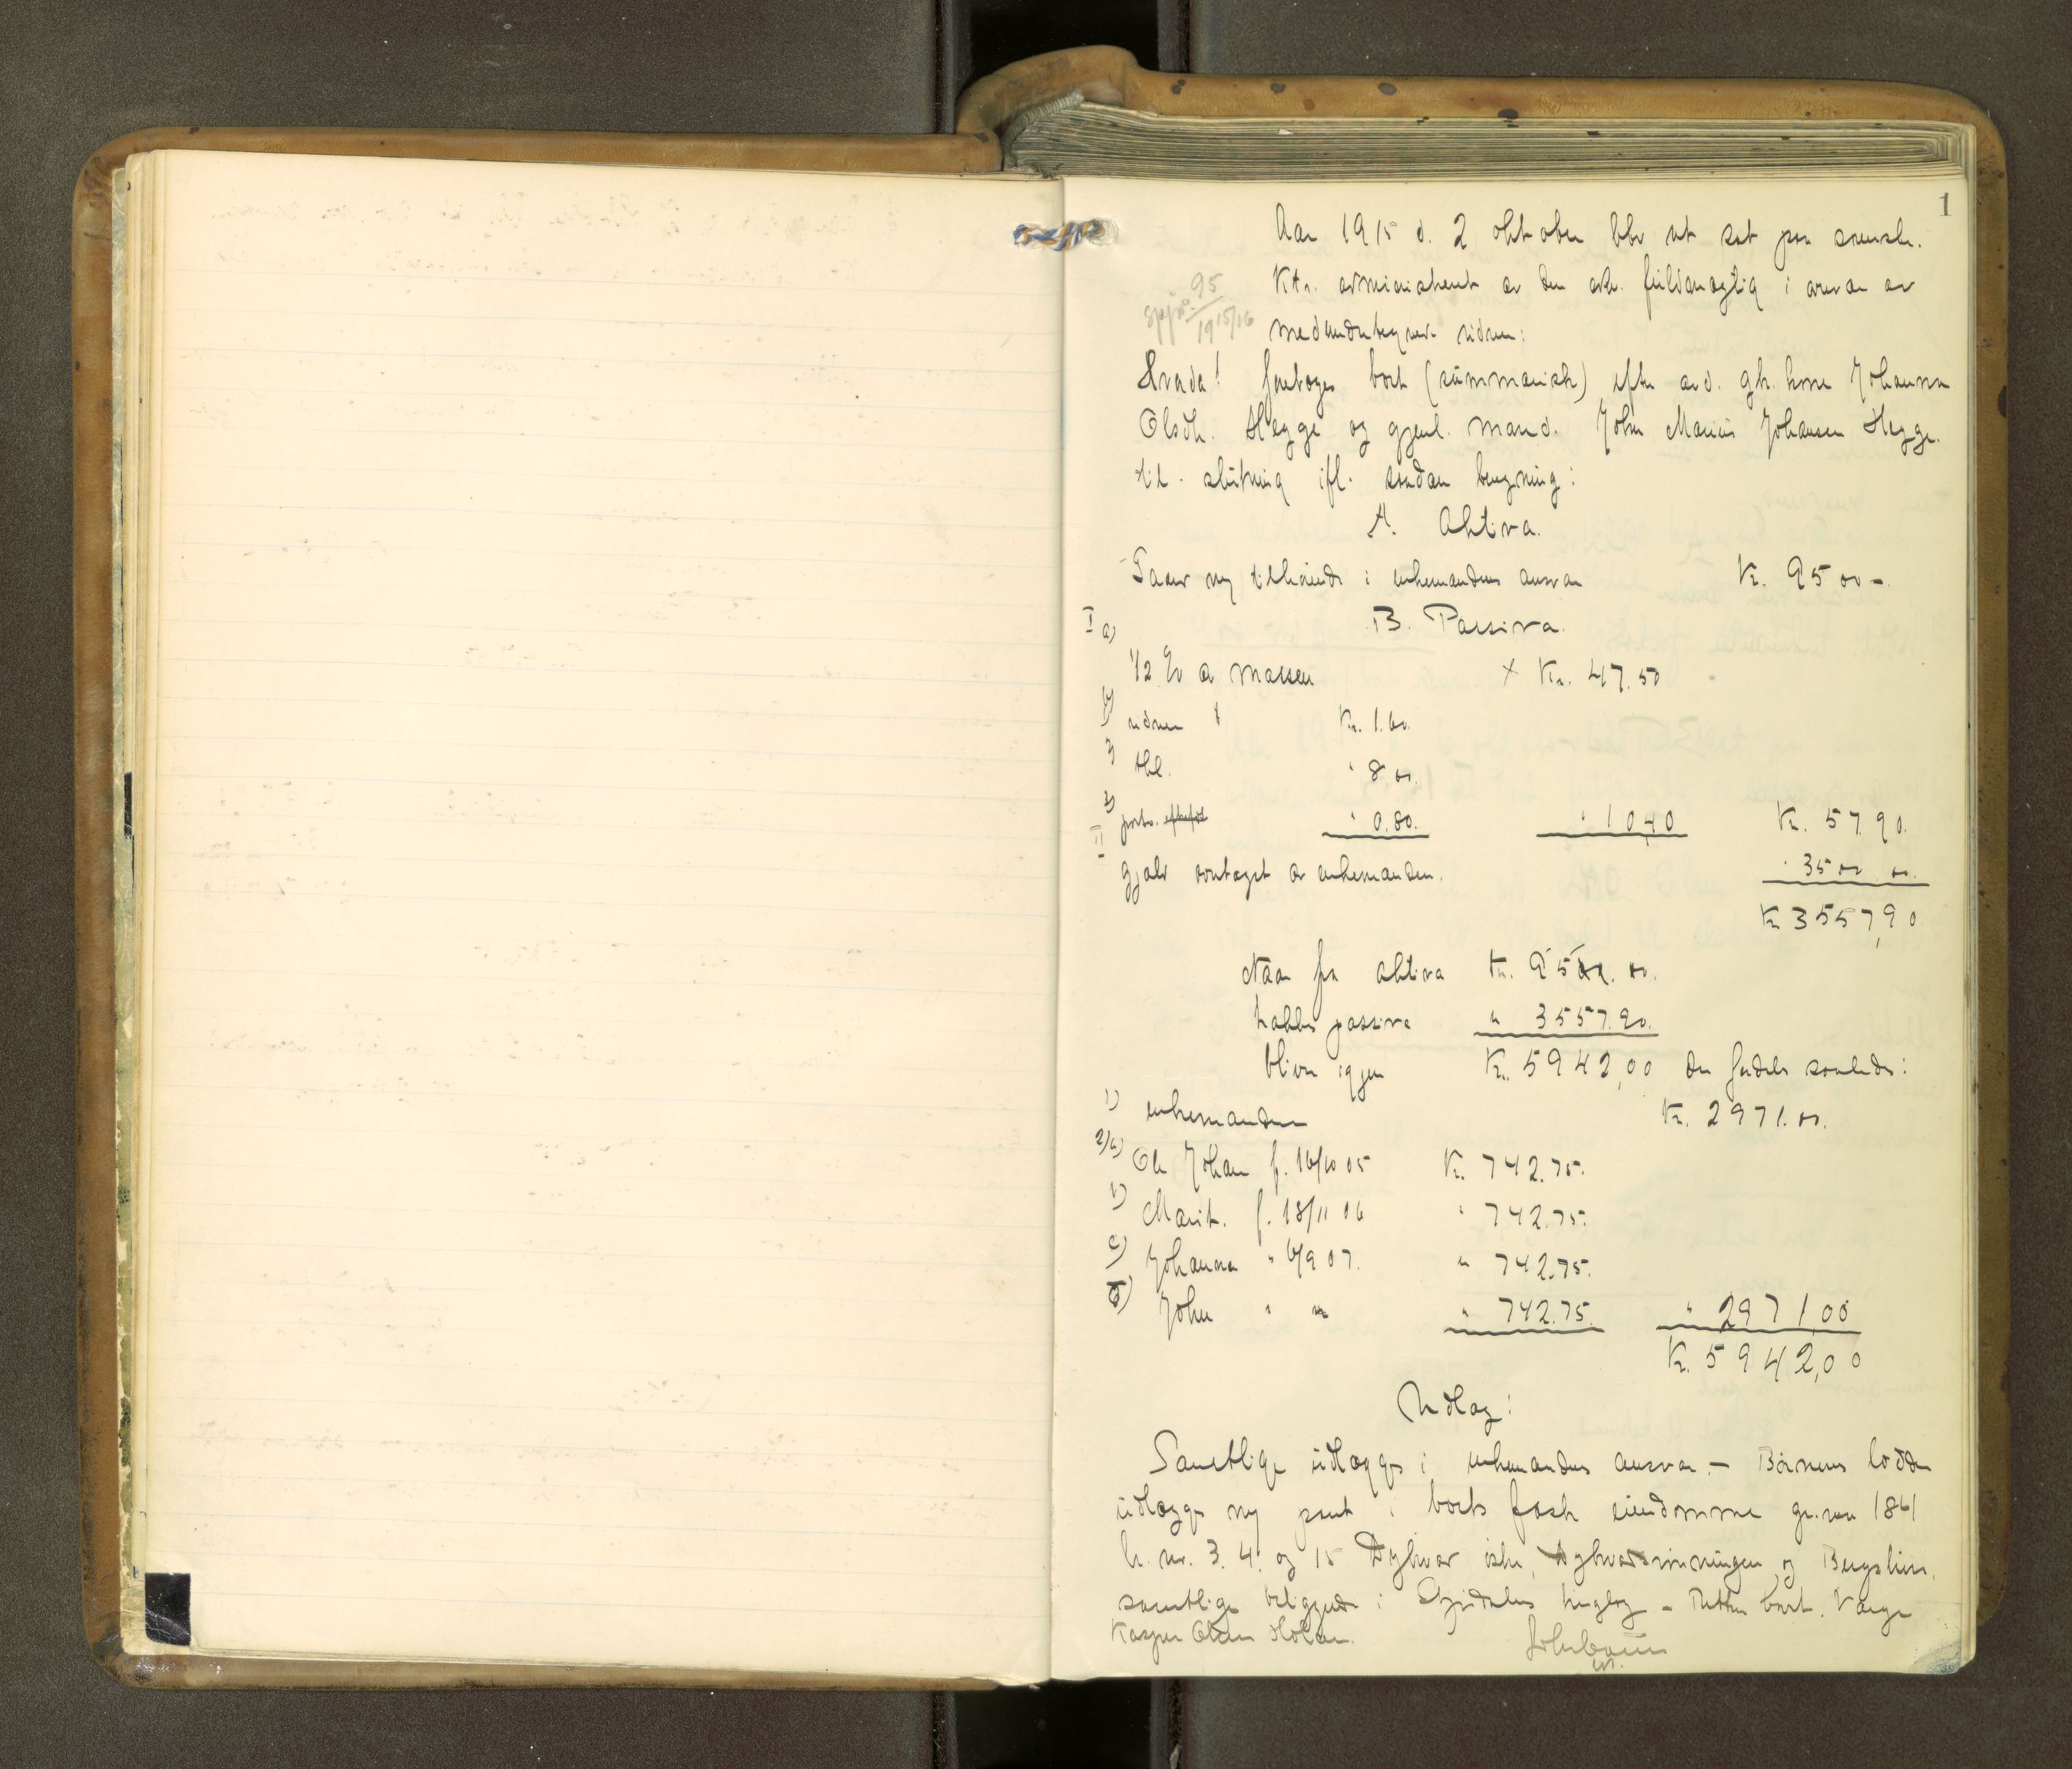 1
Aar 1915 d. 2 oktober blev ret sat paa sorensk.
Ktr. administrert av den edv. fuldmægtig i nærvær av
95
19 15/16
medundertegnede vidner:
Hvorda! foretoges boet (summarisk) efter avd. gk. kone Johanna
Olsdtr. Hegge og gjenl. mand John Marius Johansen Hegge
til slutning ifl. saadan beregning:
A. Aktiva.
Taxer og tilhørende i enkemandens ansvar Kr. 9500 -
B. Passiva.
I a)
1/2 % av massen × Kr. 47.50
b) vidner Kr. 1.60.
3) skl. " 8,00.
porto " 0.80. " 10,40 Kr. 57,90.
II
Gjæld vedtaget av enkemanden. " 3500 00.
Kr 3557,90
Naar fra aktiva Kr. 9500.00.
kobbles passiva " 3557.90.
bliver igjen Kr. 5942,00 der fordeles saaledes:
1) enkemanden Kr. 2971.00.
2) a) Ole Johan f. 16/10 05 Kr. 742.75.
b) Marit. f. 18/11 06 " 742.75.
c) Johanna " 6/9 07. " 742.75.
d) John " " " 742.75. " 2971,00
Kr. 5942,00
Udlæg:
Samtlige udlægges i enkemandens ansvar. - Børnenes lodder
udlægges mg pant i boets faste eiendomme gr.nr 1861
b. nr. 3. 4. og 15 Dyhvar østre, Dyhvarsvinningen og Bergslien,
samtlige beliggende i Stjørdalens thinglag - Rettens bort. Værge
Kasper Olsen Hoban.